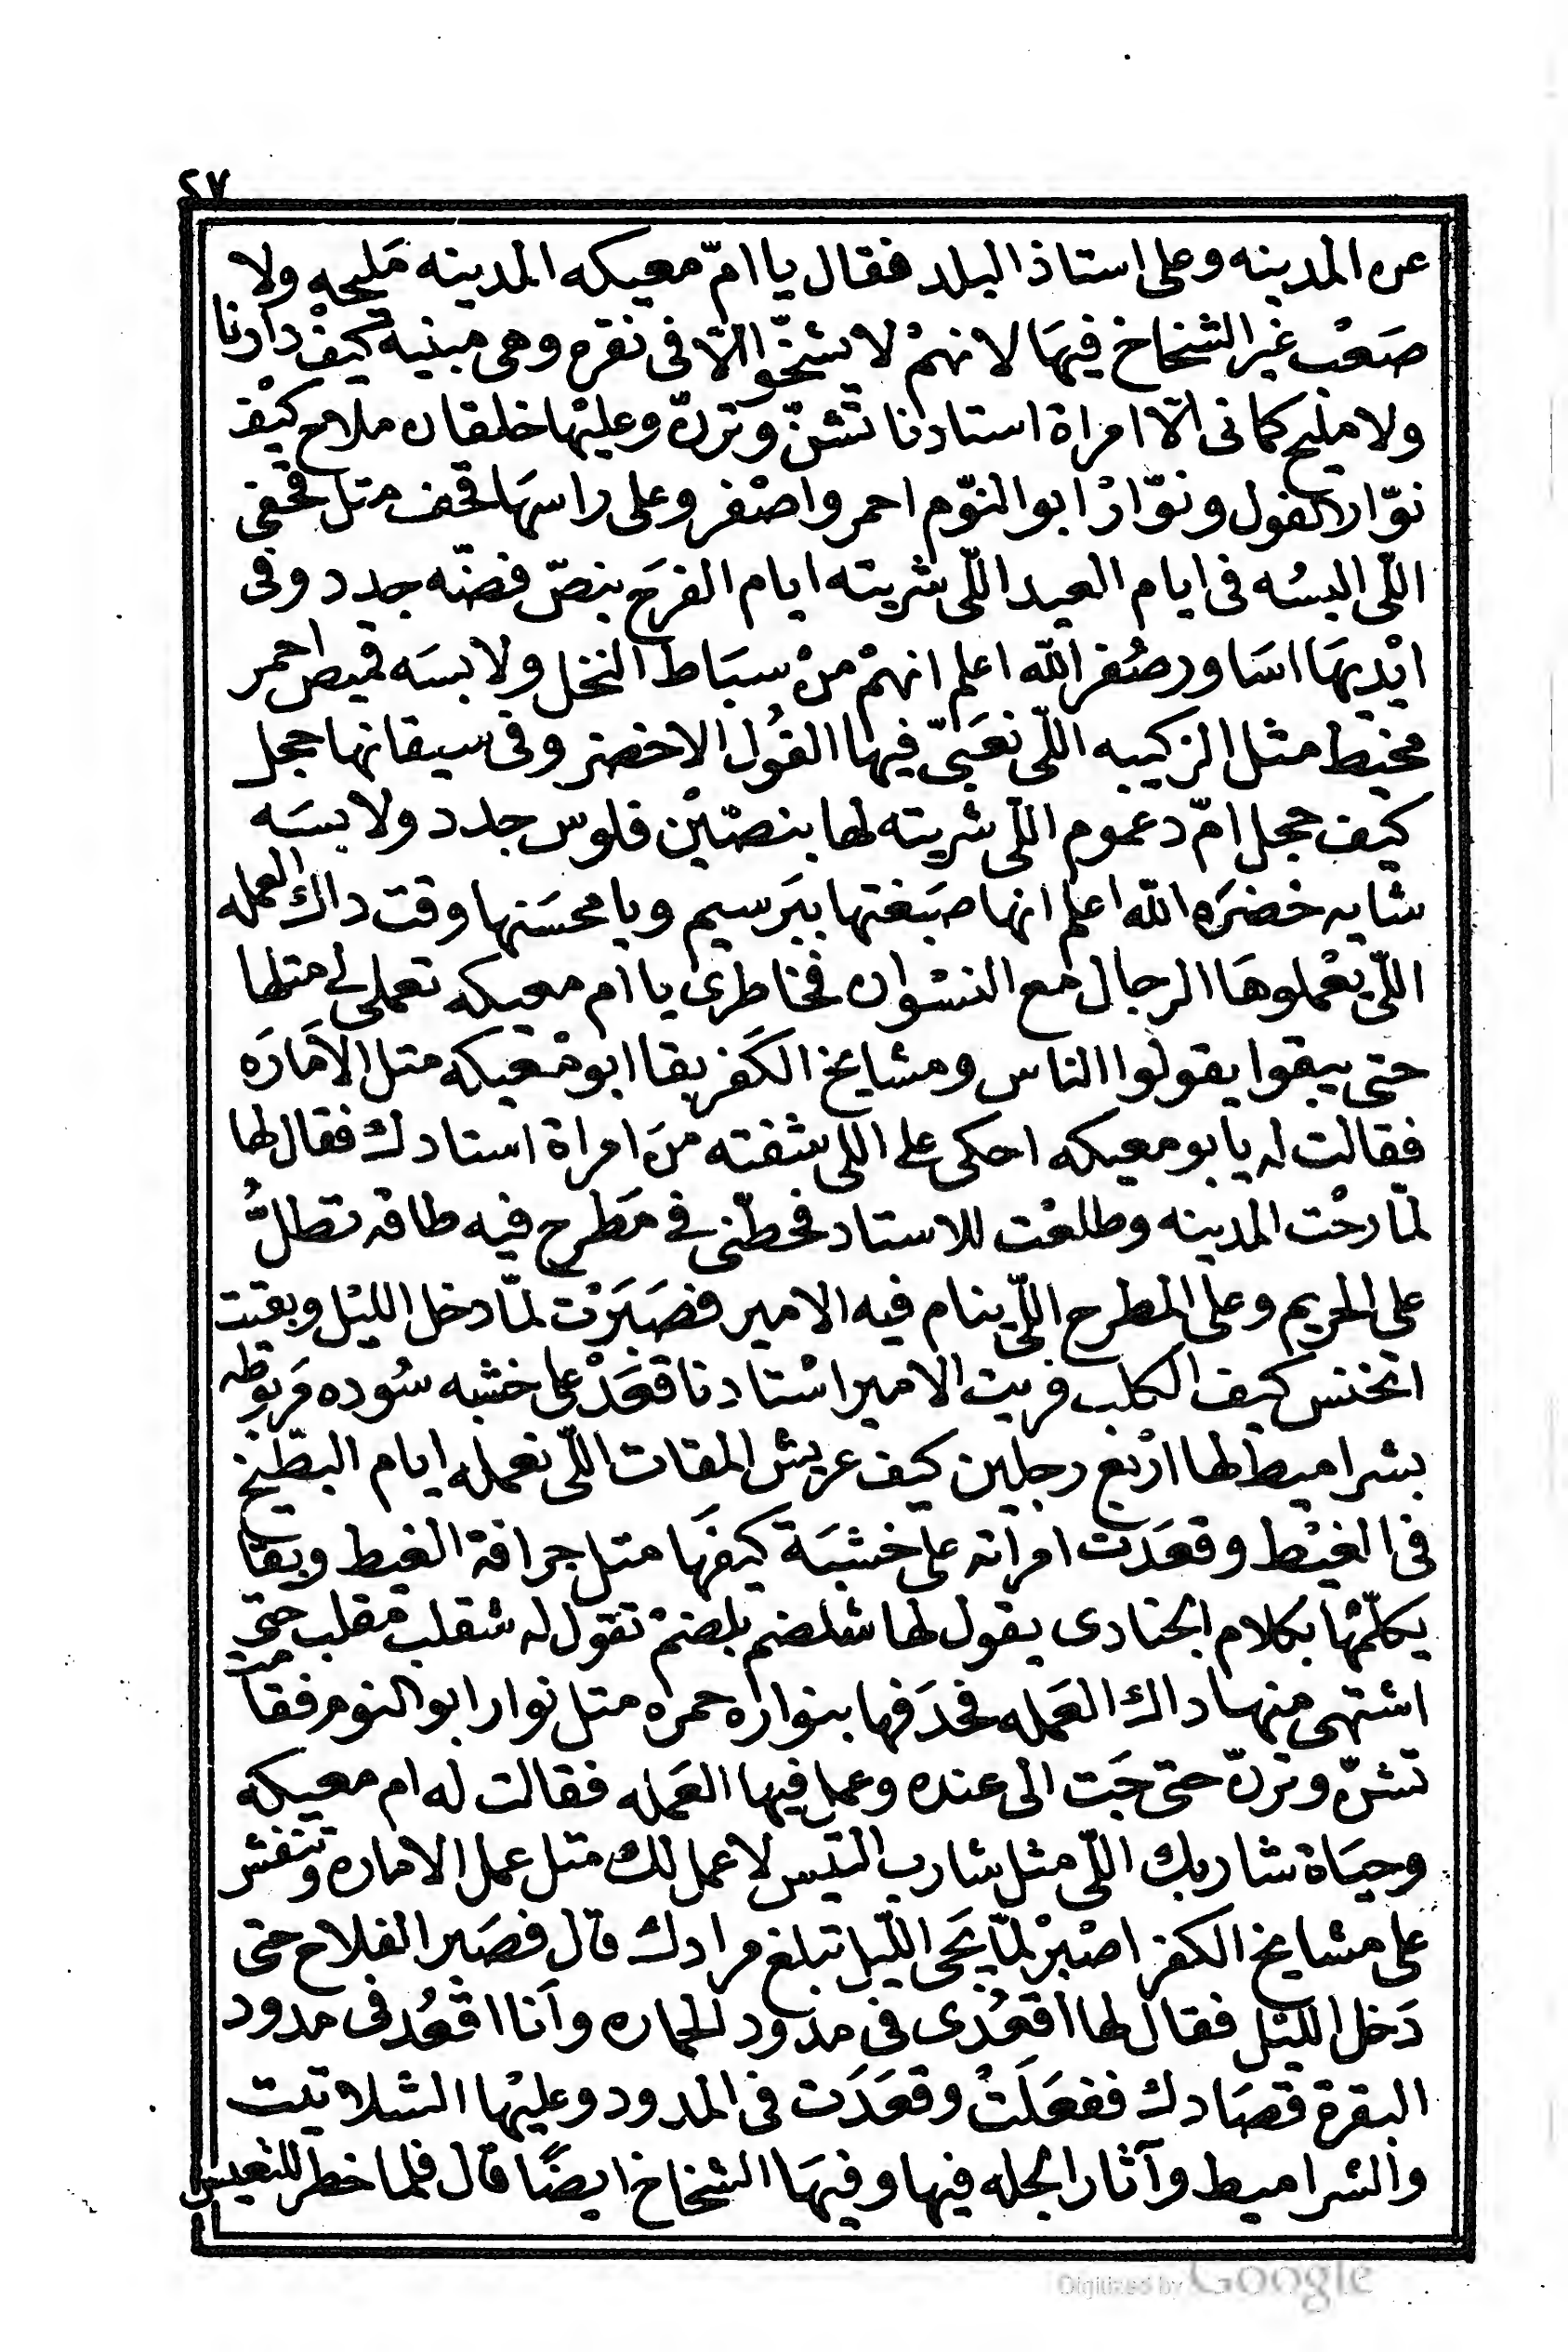 ٢٧
عن المدينه وعلى استاذ البلد فقال يا امّ معيكه المدينه مَليحه ولا
صَعْب غير الشخاخ فيهَا لانهمْ لا يشخّوا الّا فى نقره وهى مبنيه كيف دارنا
ولا مليح كمانى الّا امراة استادنا تشنّ وترنّ وعليْها خلقان ملاح كيْف
نوّار الفول ونوّارْ ابو النوّم احمر واصْفر وعلى راسهَا قحف متل قحفى
اللّى البسُه فى ايام العيد اللّى شريته ايام الفرَح بنصّ فضّه جدد وفى
ايْديهَا اسَاور صُفر الله اعلم انهمْ منْ سبَاط النخل ولابسَه قميص احمر
مخيّط مثل الزكيبه اللّى نعَبّى فيها الفُول الاخضر وفى سيقانها حجل
كيْف حجل امّ دعموم اللّى شريته لها بنصّيْن فلوس جدد ولابسَه
شايه خضرَه الله اعلم انها صَبغتها ببَرسيم ويا محسَنها وقت داك العمله
اللّى يعْملوهَا الرجال مع النسْوان فخاطرى يا ام معيكه تعملى لى متلها
حتى يبقوا يقولوا الناس ومشايخ الكَفر بقا ابو مْعيكه متل الاَمَارَه
فقالت له يا بو معيكه احكى على اللى شفته منَ امراة استادك فقال لها
لمّا رحْت المدينه وطلعْت للاستاد فحطّنى فى مَطرح فيه طاقه تطلُّ
على الحريم وعلى المطرح اللّى ينام فيه الامير فصَبَرْت لمّا دخل الليْل وبقيت
اتخنس كيف الكلب فريت الامير اسْتادنا قعَدْ على خشبه سُوده مَربوطه
بشراميط لها ارْبع رجلين كيف عريش المقات اللّى نعمله ايام البطّيخ
فى الغيْط وقعَدَت امراته على خشبَة كيفهَا متل جرافة الغيط وبقا
يكلّمْها بكلام الجنادى يقول لها شلضم بلضمْ تقول له شقلب مقلب حتى
اشتهى منها داك العَمله فحَدَفها بنواره حمره متل نوار ابو النوم فقامت
تشنّ وترنّ حتى جَت الى عنده وعمل فيها العَمله فقالت له ام معيكه
وحيَاة شاربك اللّى مثل شارب التيْس لاعمل لك متل عمل الاماره وتنفشر
على مشايخ الكفر اصْبرْ لمّا يَجى اللّيل تبلغ مرادك قال فصَبر الفلاح حتى
دَخل الليْل فقال لها اقعُدى فى مدود الحماره وأنا اقعُد فى مدود
البقرة قصَادك ففعَلَتْ وقعَدَت فى المدود وعليْها الشلاتيت
والشراميط وآثار الجله فيها وفيهَا الشخاخ ايضًا قال فلما خطر للتعيس